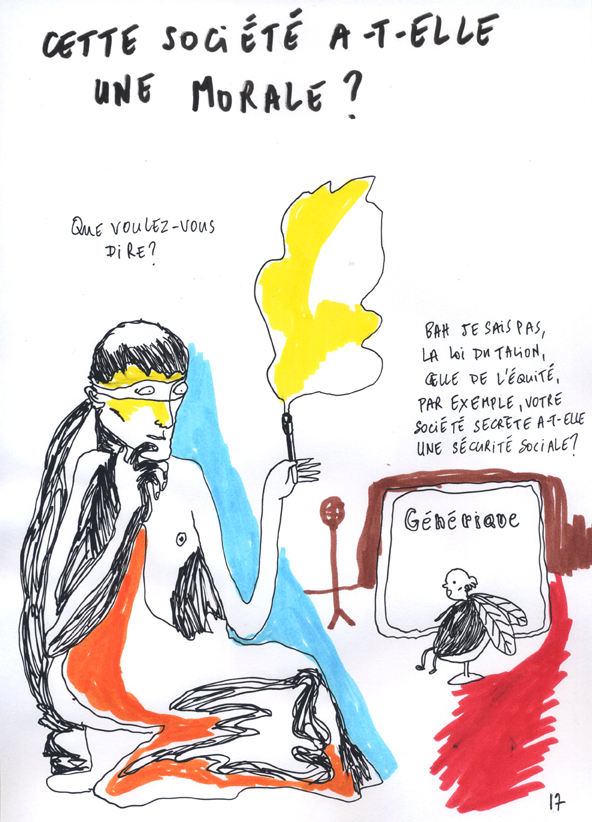 CETTE SOCIÉTÉ A-T-ELLE
UNE MORALE?
QUE VOULEZ-VOUS
DIRE?
BAH JE SAIS PAS,
LA LOI DU TALION,
CELLE DE L'ÉQUITÉ,
PAR EXEMPLE, VOTRE
SOCIÉTÉ SECRÈTE A-T-ELLE
UNE SÉCURITÉ SOCIALE?
Générique
17